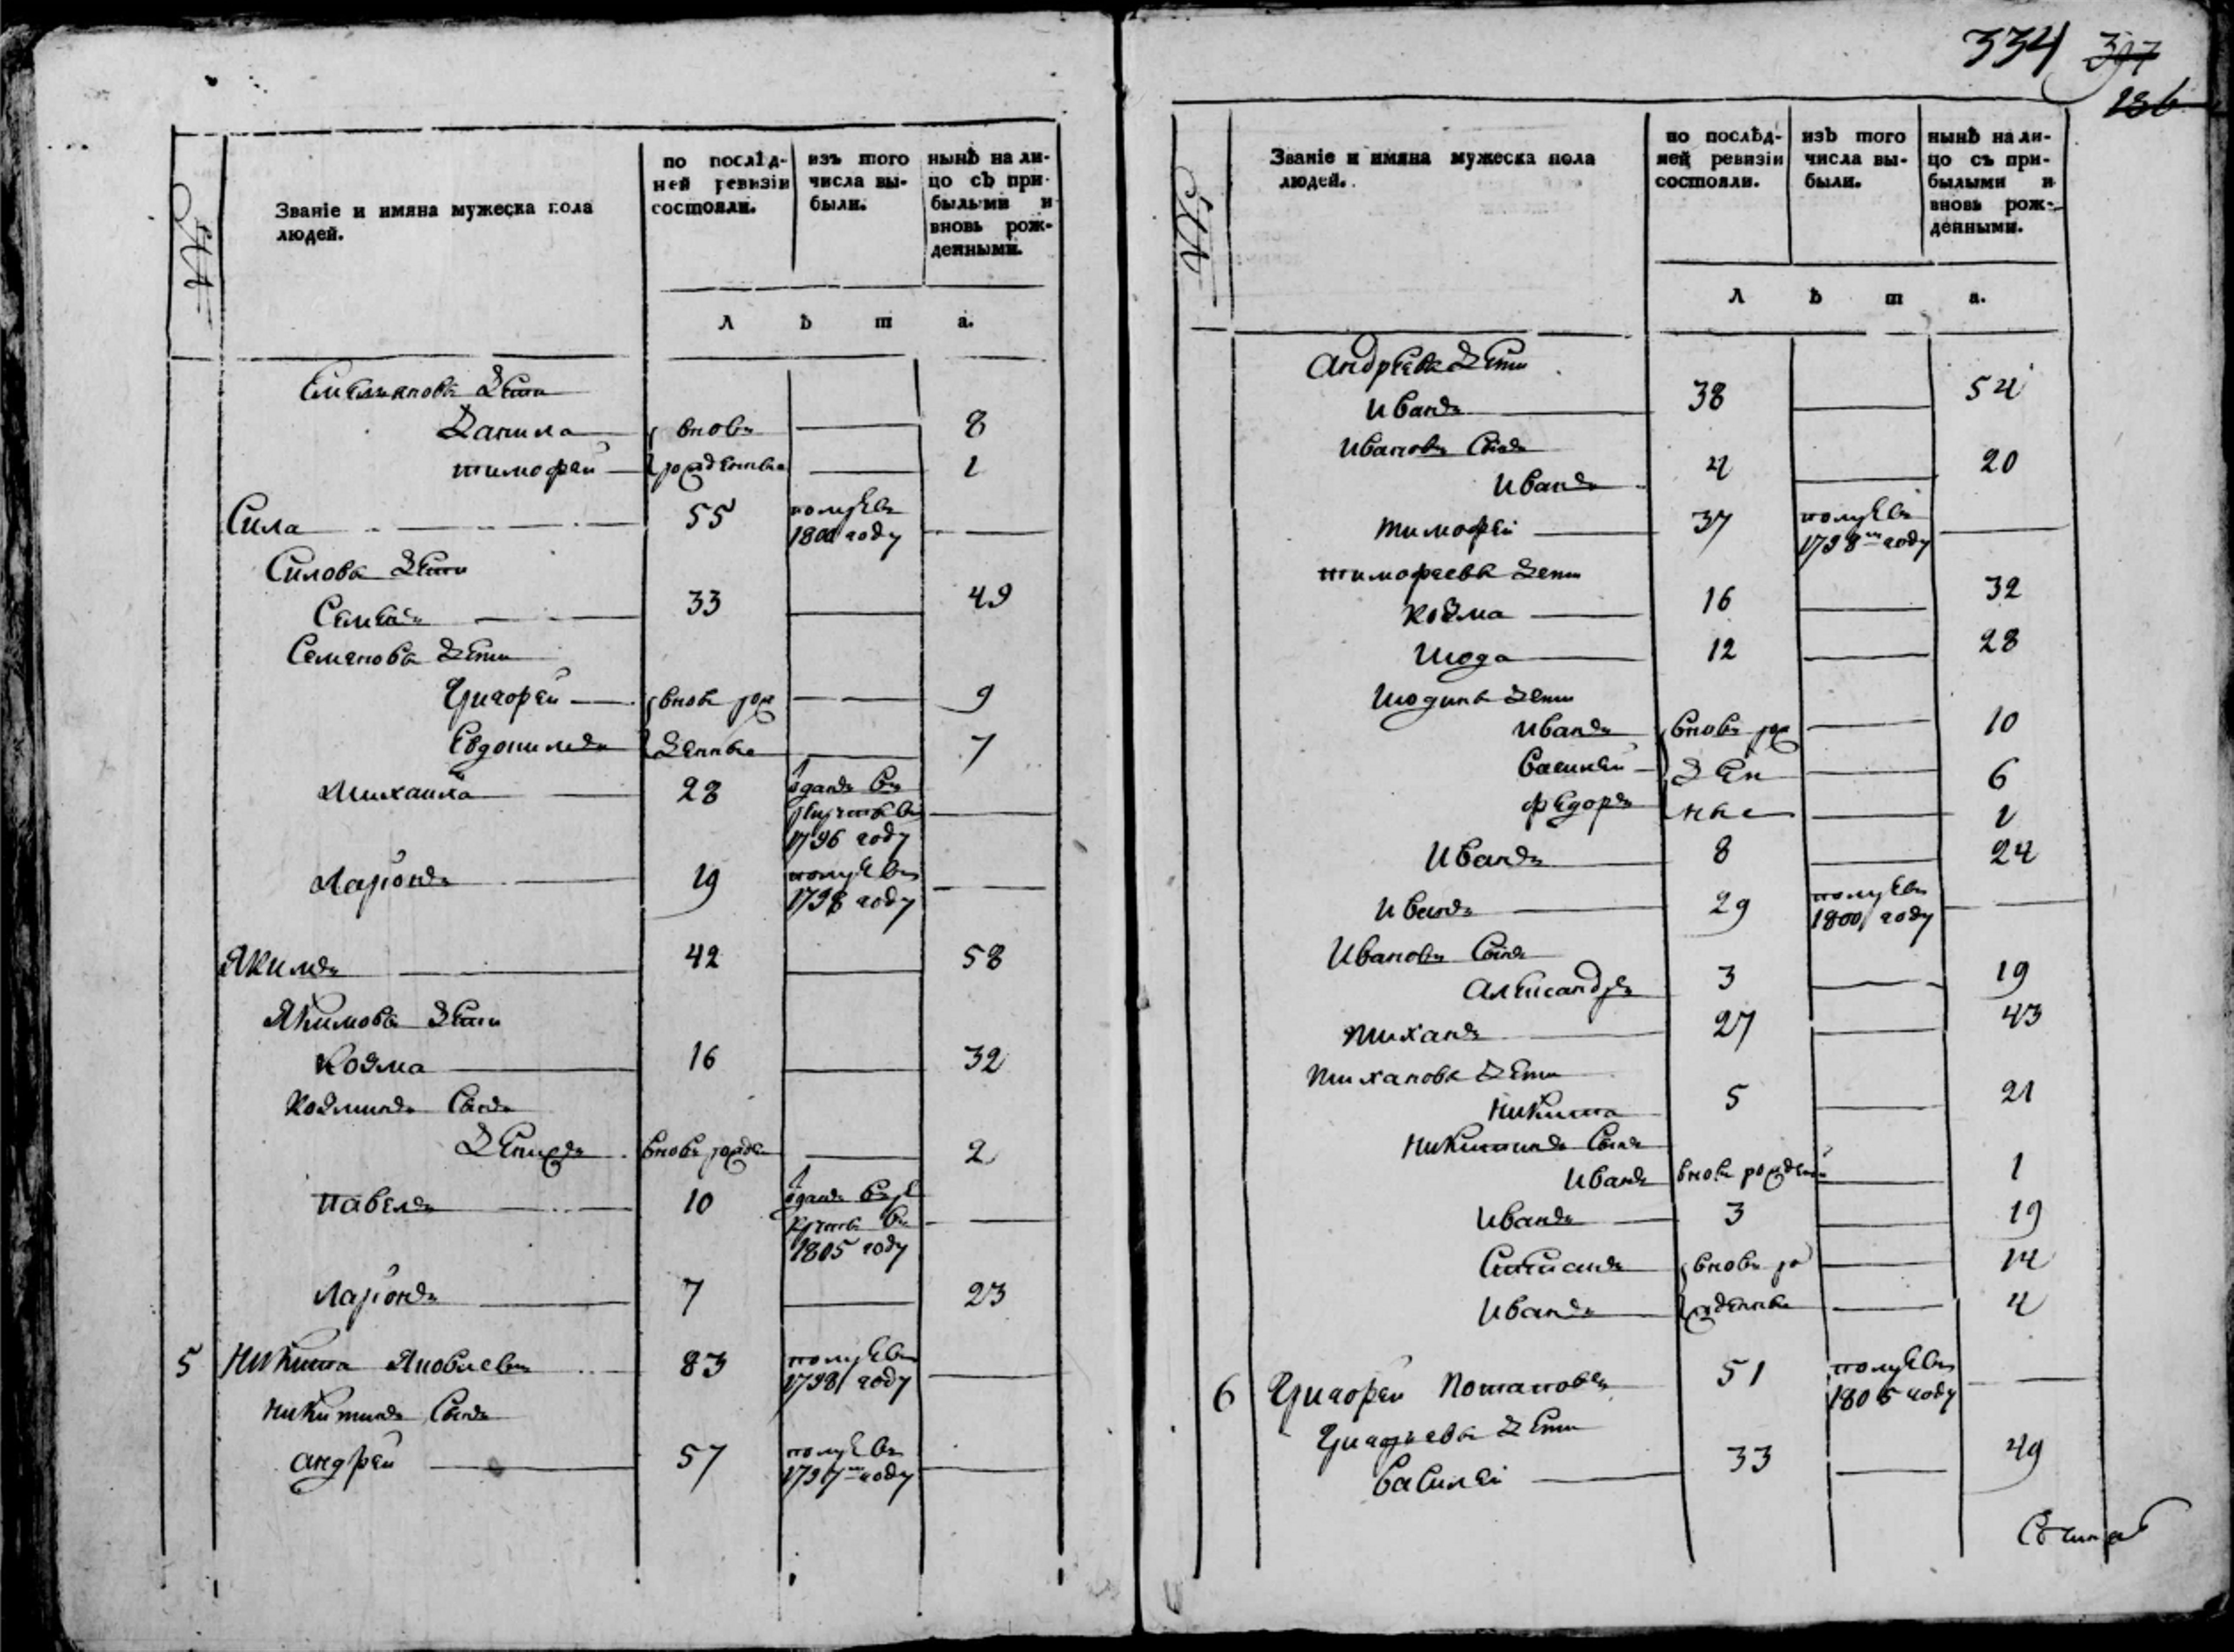 №
Званіе и имяна мужеска пола
людей.
по послѣд-
ней ревизіи
состояли.
изъ того
числа вы-
были.
нынѣ на ли-
цо съ при-
былыми и
вновь рож-
денными.
л ѣ т а.
Емельяновы Дети
Данила вновь 8
тимофѣй рожденные 1
Сила 55 померъ въ
1800 году
Силовы Дети
Семенъ 33 49
Семеновы Дети
Григорей вновь рож 9
Евдокимъ Денные 7
Михаила 28 ѿданъ въ
рекруты въ
1796 году
Ларионъ 19 померъ въ
1798 году
Якимъ 42 58
Якимовы Дети
Козма 16 32
Козминъ Сынъ
Денисъ вновь рожден 2
Павелъ 10 ѿданъ въ ре
круты въ
1805 году
Ларионъ 7 23
5 Никита Яковлевъ 83 померъ въ
1798 году
Никитинъ Сынъ
андрей 57 померъ въ
1797м году
334 397
186
№
Званіе и имяна мужеска пола
людей.
по послѣд-
ней ревизіи
состояли.
изъ того
числа вы-
были.
нынѣ на ли-
цо съ при-
былыми и
вновь рож-
денными.
л ѣ т а.
Андреевы Дети
Иванъ 38 54
Ивановъ Сынъ
Иванъ 4 20
тимофей 37 померъ въ
1798м году
тимофеевы дети
Козма 16 32
Иода 12 28
Иодины Дети
Иванъ вновь рож 10
Василей Ден 6
Федоръ ные 1
Иванъ 8 24
Иванъ 29 померъ въ
1800 году
Ивановъ Сынъ
Александръ 3 19
тиханъ 27 43
тихановы Дети
Никита 5 21
Никитинъ Сынъ
Иванъ вновь рожденъ 1
Иванъ 3 19
Степанъ вновь ро 14
Иванъ жденные 4
6 Григорей Потаповъ 51 померъ въ
1805 году
Григорьевы Дети
Василей 33 49